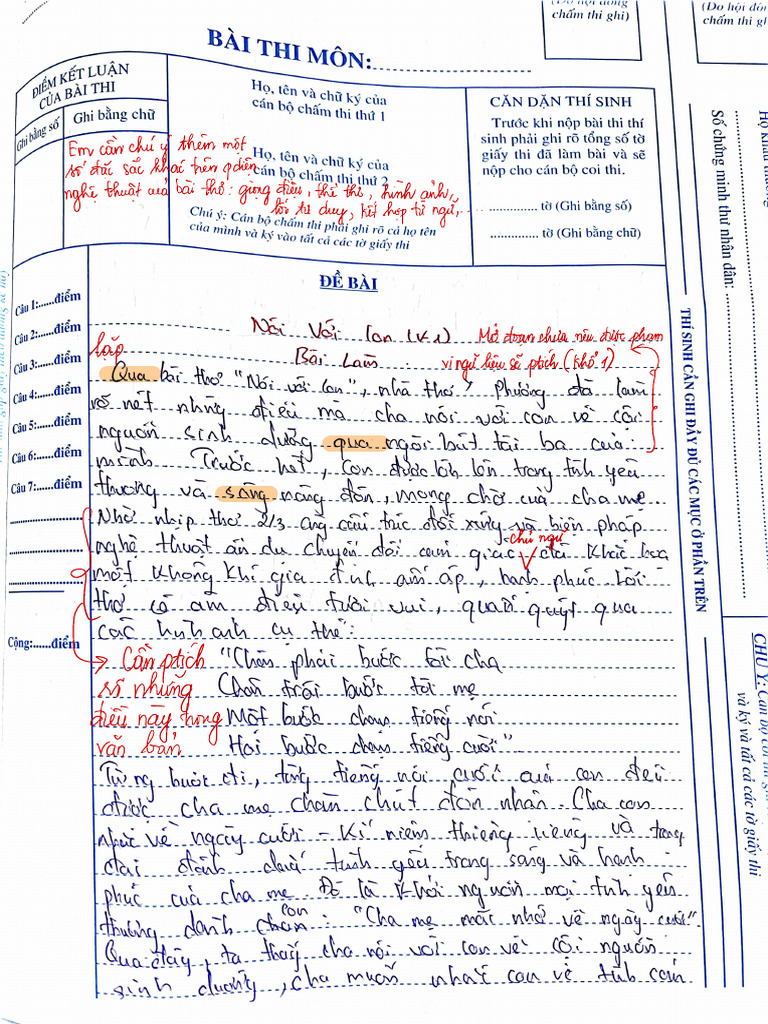 (Do hội đồng
chấm thi ghi)
(Do hội đồng
chấm thi ghi)
BÀI THI MÔN:
ĐIỂM KẾT LUẬN
CỦA BÀI THI
Ghi bằng số
Ghi bằng chữ
Họ, tên và chữ ký của
cán bộ chấm thi thứ 1
Họ, tên và chữ ký của
cán bộ chấm thi thứ 2
Chú ý: Cán bộ chấm thi phải ghi rõ cả họ tên
của mình và ký vào tất cả các tờ giấy thi
Em cần chú ý thêm một
số đặc sắc khác trên p.diện
nghệ thuật của bài thơ: giọng điệu, thể thơ, hình ảnh,
lối tư duy, kết hợp từ ngữ,...
CĂN DẶN THÍ SINH
Trước khi nộp bài thi thí
sinh phải ghi rõ tổng số tờ
giấy thi đã làm bài và sẽ
nộp cho cán bộ coi thi.
tờ (Ghi bằng số)
tờ (Ghi bằng chữ)
Số chứng minh thư nhân dân:
THÍ SINH CẦN GHI ĐẦY ĐỦ CÁC MỤC Ở PHẦN TRÊN
CHÚ Ý: Cán bộ coi thi
và ký và tất cả các tờ giấy thi
ĐỀ BÀI
Câu 1:......điểm
Câu 2:......điểm
Câu 3:......điểm
Câu 4:......điểm
Câu 5:......điểm
Câu 6:......điểm
Câu 7:......điểm
Cộng:.....điểm
Nói Với Con (K1)
Mở đoạn chưa nêu được phạm
vi ngữ liệu sẽ ptích (khổ 1)
lặp
Bài Làm
Qua bài thơ "Nói với con", nhà thơ Y Phương đã làm
rõ nét những điều mà cha nói với con về cội
nguồn sinh dưỡng qua ngòi bút tài ba của
mình. Trước hết, con được lớn lên trong tình yêu
thương và sâng nâng đón, mong chờ của cha mẹ
Nhờ nhịp thơ 2/3 cấu trúc đối xứng và biện pháp
chủ ngữ
nghệ thuật ẩn dụ chuyển đổi cảm giác đã khắc họa
một không khí gia đình ấm áp, hạnh phúc. Lời
thơ có âm điệu tươi vui, quấn quýt qua
các hình ảnh cụ thể:
Cần ptích
số những
điều này trong
văn bản
"Chân phải bước tới cha
Chân trái bước tới mẹ
Một bước chạm tiếng nói
Hai bước chạm tiếng cười"
Từng bước đi, từng tiếng nói cười của con đều
được cha mẹ chăm chút đón nhận. Cha con
nhức về ngày cưới - Kỉ niệm thiêng liêng và
đánh dấu tình yêu trong sáng và hạnh
phúc của cha mẹ. Đó là khởi nguồn mọi tình yêu
thương dành con: "Cha mẹ mãi nhớ về ngày cưới".
Qua đây, ta thấy cha nói với con về cội nguồn
sinh dưỡng, cha muốn nhắc con về tình cảm